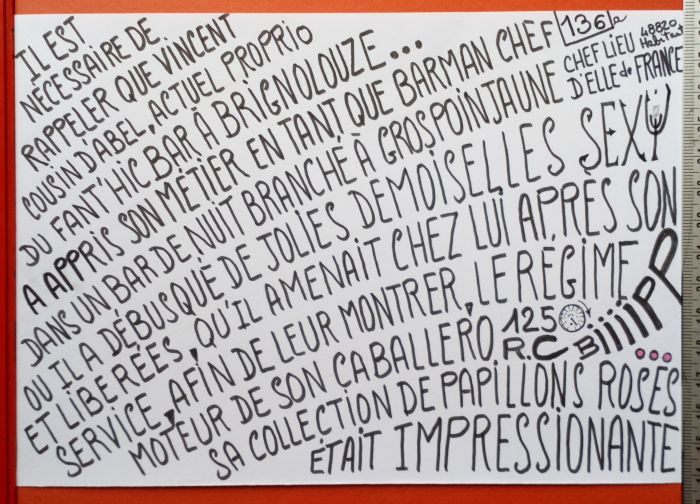 IL EST
NÉCESSAIRE DE
RAPPELER QUE VINCENT
COUSIN D'ABEL, ACTUEL PROPRIO
DU FANT'HIC BAR À BRIGNOLOUZE...
A APPRIS SON MÉTIER EN TANT QUE BARMAN CHEF
DANS UN BAR DE NUIT BRANCHÉ À GROSPOINJAUNE
136 a
CHEF LIEU 48820 Habitants
D'ELLE de FRANCE
OU IL A DÉBUSQUÉ DE JOLIES DEMOISELLES SEXY
ET LIBÉRÉES, QU'IL AMENAIT CHEZ LUI APRÈS SON
SERVICE, AFIN DE LEUR MONTRER, LE RÉGIME
MOTEUR DE SON CABALLERO 125
R.C BiiiiPP
SA COLLECTION DE PAPILLONS ROSES
ETAIT IMPRESSIONANTE